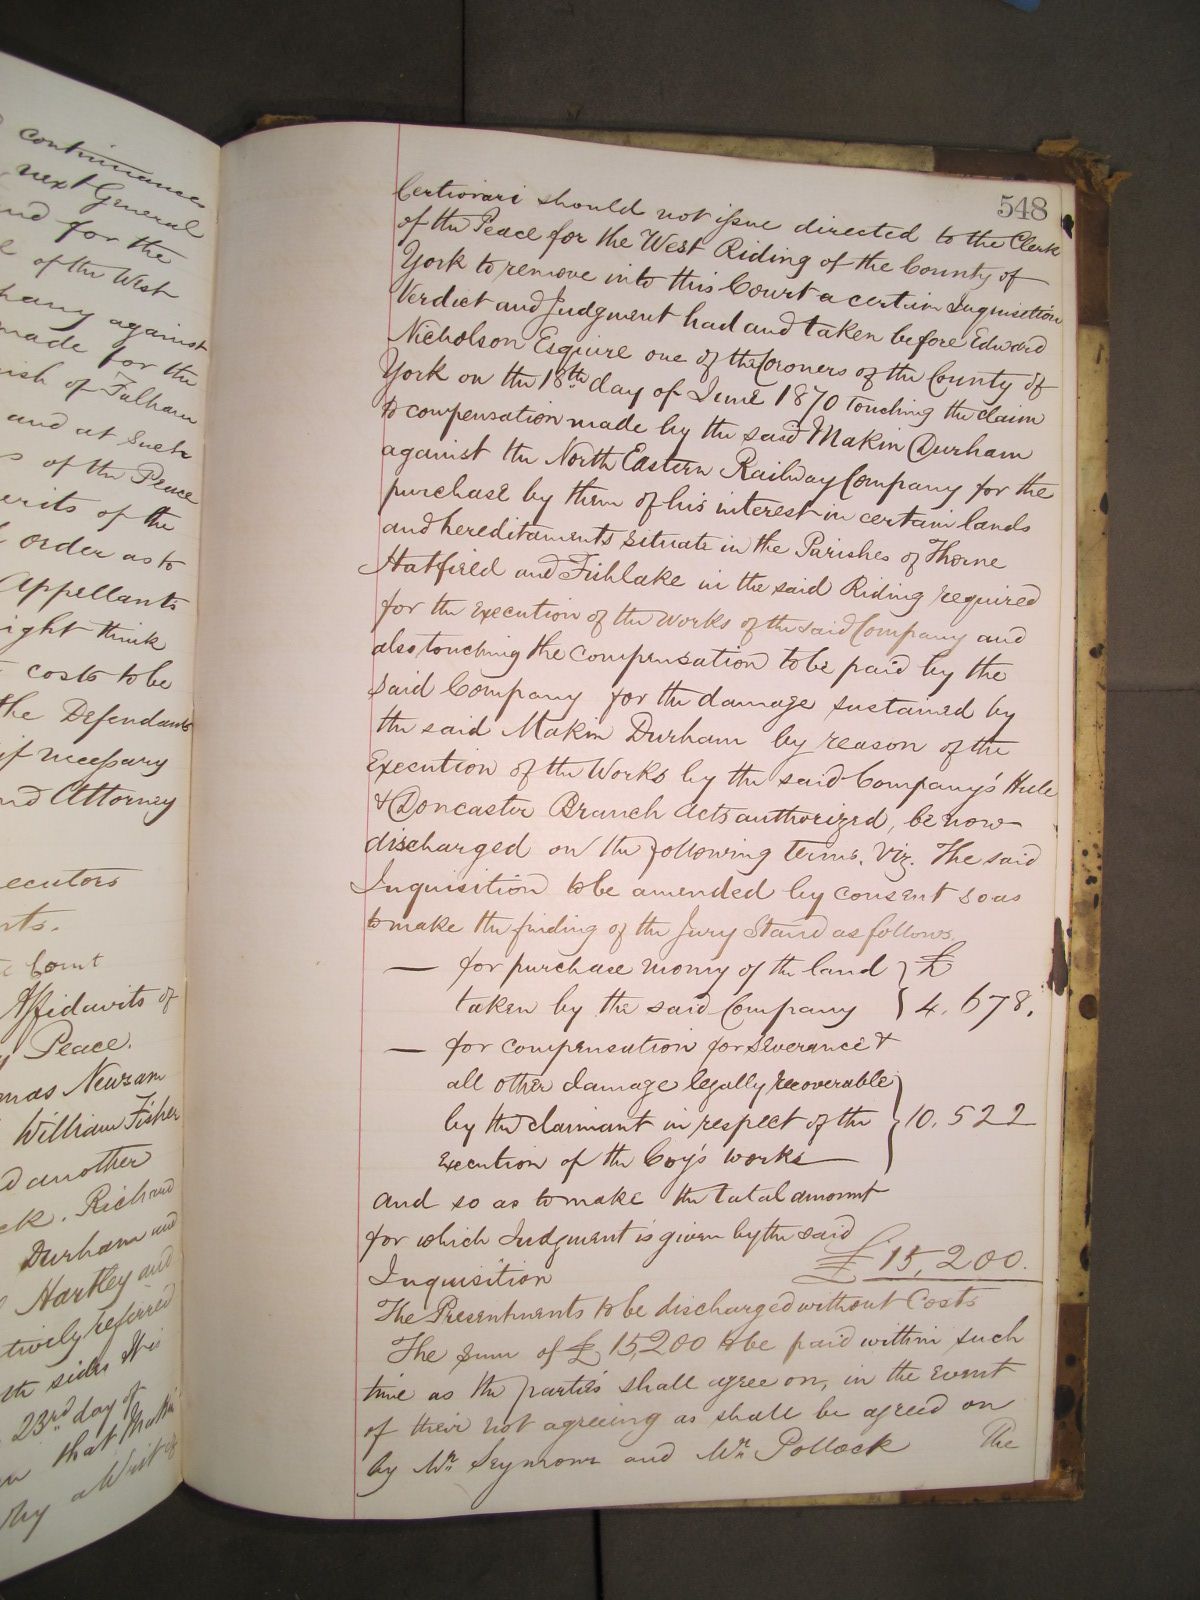 continuance
next General
and for the
of the West
against
made for the
of Fulham
and at such
of the Peace
of the
order as to
Appellants
think
costs to be
the Defendants
if necessary
Attorney
ecutors
Court
Affidavits of
Peace.
Newsam
William Fisher
another
Richard
Durham and
Hartley and
referred
sides
23rd day of
that
by a Writ of
548
Certiorari should not issue directed to the Clerk
of the Peace for the West Riding of the County of
York to remove into this Court a certain Inquisition
Verdict and Judgment had and taken before Edward
Nicholson Esquire one of the Coroners of the County of
York on the 18th day of June 1870 touching the claim
to compensation made by the said Makin Durham
against the North Eastern Railway Company for the
purchase by them of his interest in certain lands
and hereditaments situate in the Parishes of Thorne
Hatfield and Fishlake in the said Riding required
for the execution of the works of the said Company and
also touching the compensation to be paid by the
said Company for the damage sustained by
the said Makin Durham by reason of the
Execution of the Works by the said Company's Hull
& Doncaster Branch Acts authorized, be now
discharged on the following terms, Viz. The said
Inquisition to be amended by consent so as
to make the finding of the Jury Stand as follows,
— for purchase money of the land } £
taken by the said Company } 4,678.
— for compensation for severance &
all other damage legally recoverable
by the claimant in respect of the } 10,522
execution of the Coy's works
and so as to make the total amount
for which Judgment is given by the said
Inquisition £15,200.
The Presentments to be discharged without Costs
The sum of £15,200 to be paid within such
time as the parties shall agree on, in the event
of their not agreeing as shall be agreed on
by Mr Seymour and Mr Pollock The